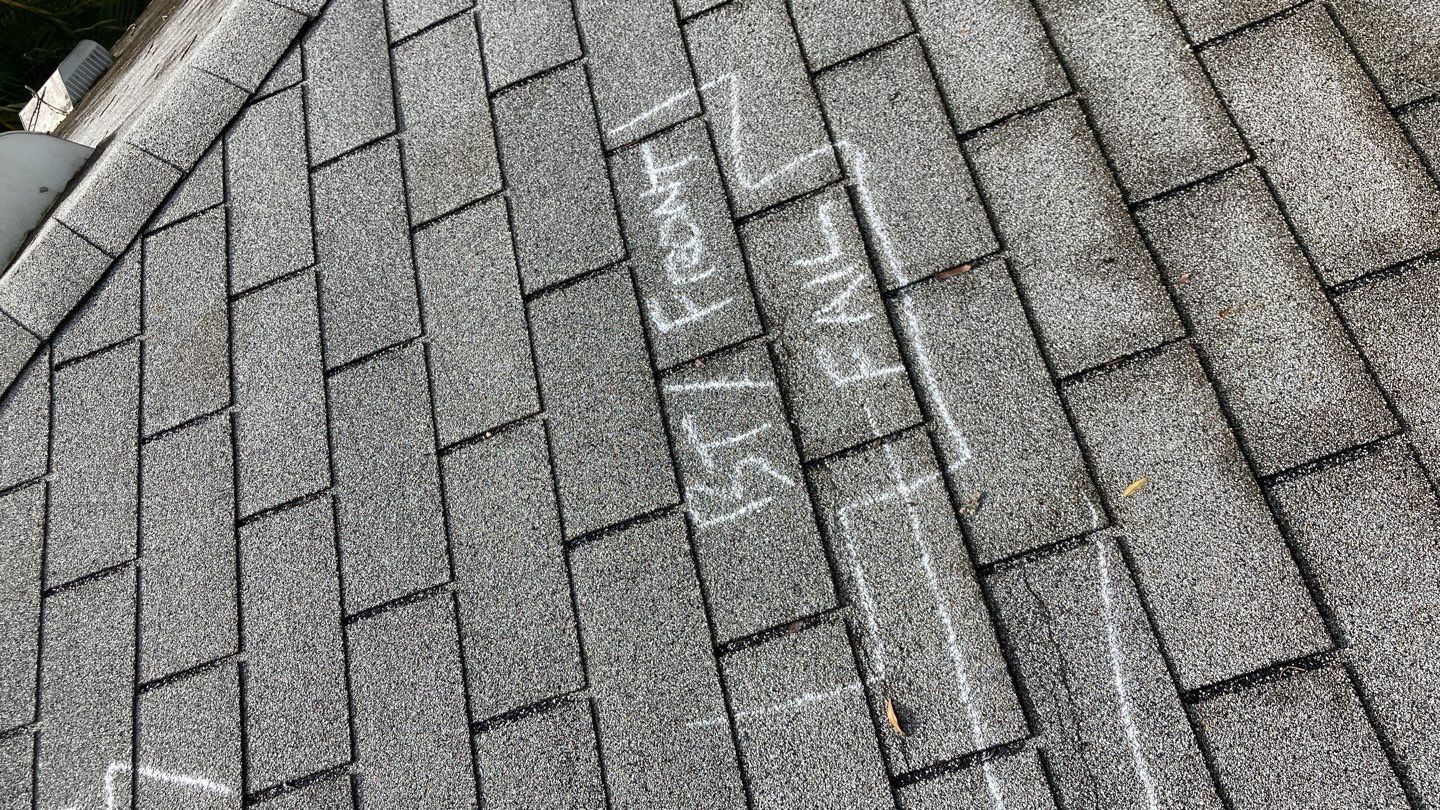 RT/FRONT
FAIL